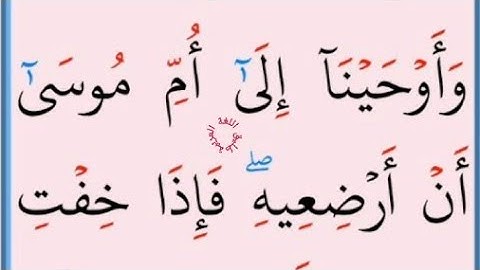 وَأَوْحَيْنَآ إِلَىٰٓ أُمِّ مُوسَىٰٓ
أَنْ أَرْضِعِيهِ ۖ فَإِذَا خِفْتِ